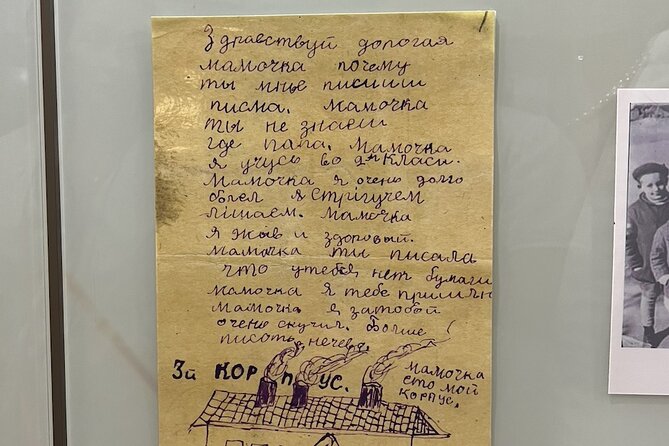 Здравствуй дорогая
мамочка почему
ты мнъе писиш
писма. Мамочка
ты не знаеш
где папа. Мамочка
я учусь во 2м класи.
Мамочка я очень долго
болел я Стрігучем
лішаем. Мамочка
я жыв и здоровый.
Мамочка ты писала
что утебя нет бумаги
мамочка я тебе пришлю
мамочка я затобой
очень скучил. Больше
писать нечево!
3й КОРПУС.
Мамочка
ето мой
корпус.